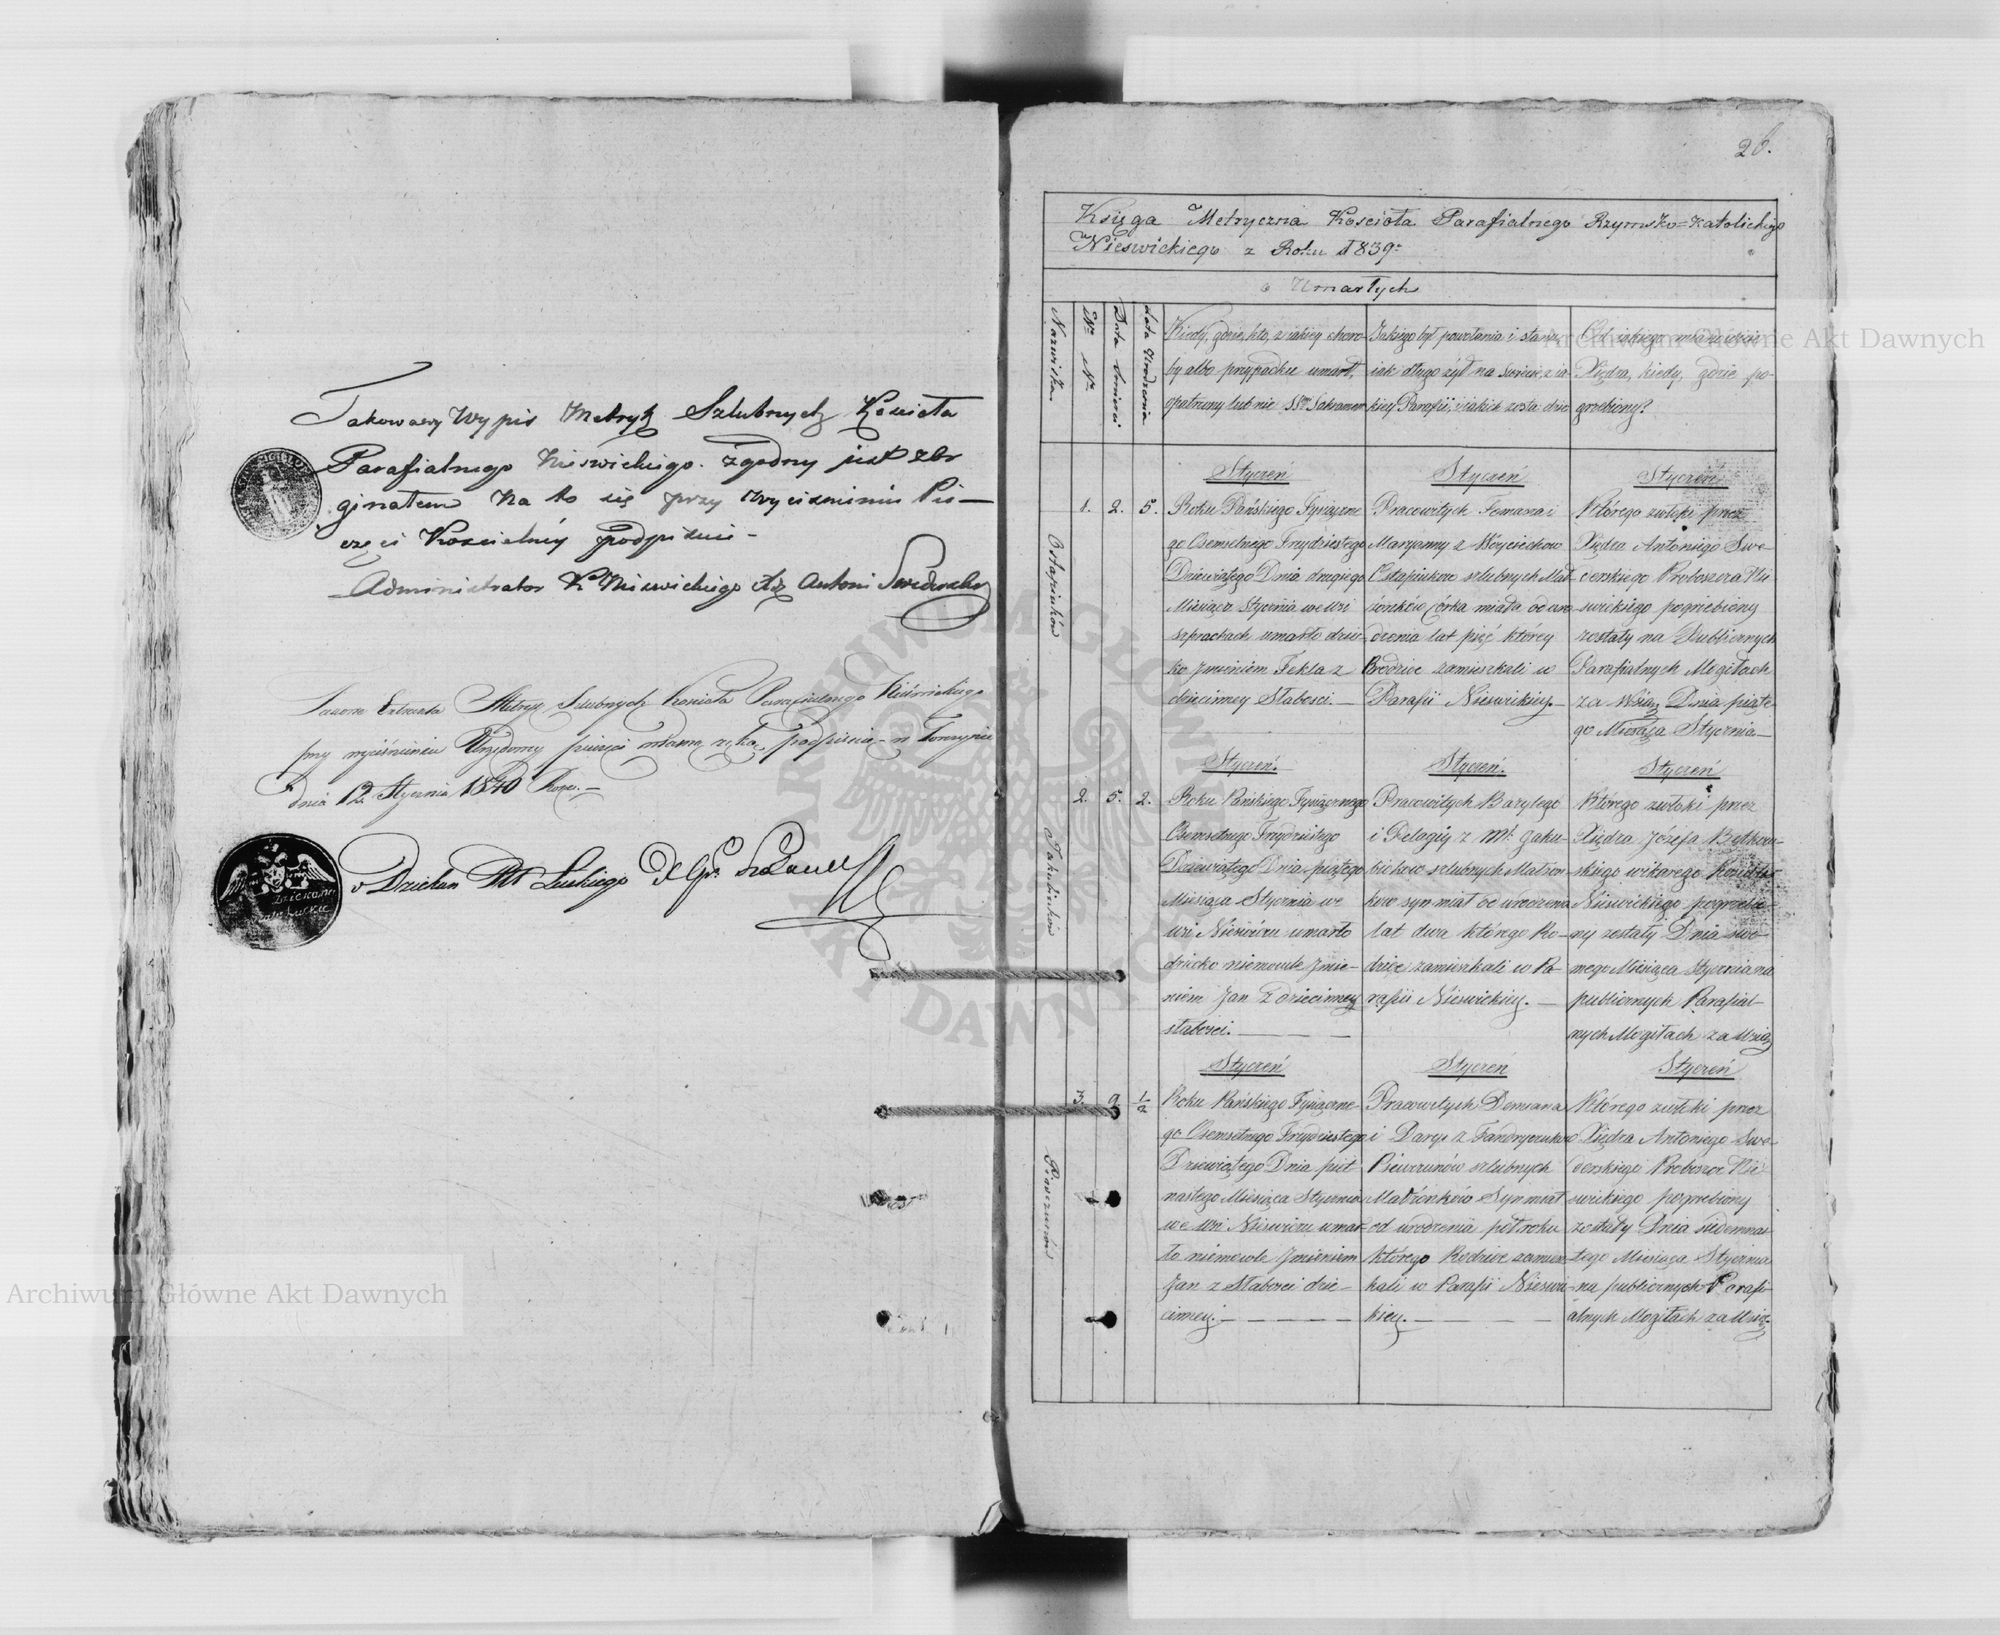 Takowy Wypis Metryk Szlubnych Kościoła
Parafialnego Nieswickiego zgodny jest z Or
ginałem Na to się przy wyciśnieniu Pie-
częci Kościelnéy podpisuie -
Administrator K. Nieswickiego Xdz Antoni
Metryk Szlubnych Kościoła Parafialnego
przy wyciśnieniu Urzędowey pieczęci własną ręką podpisuię w Torczynie
dnia 12 Stycznia 1840 Roku. -
Dziekan Pt Łuckiego
Dziekana
26.
Księga Metryczna Kościoła Parafialnego Rzymsko=Katolickiego
Nieswickiego z Roku 1839o
o Umarłych
Nazwiska
Nr Nr
Data Smierci
Lata Urodzenia
Kiedy, gdzie, kto, z iakiey choro-
by albo przypadku umarł,
opatrzony lub nie SSmi Sakramen
Jakiego był powołania i stanu,
iak długo żył na swiecie, z ia-
kiey Parafii, i iakich zosta: dzie
Od iakiego mianowicie
Xiędza, kiedy, gdzie po-
grzebiony?
Ostapiuków
1. 2. 5.
Styczeń
Roku Pańskiego Tysiączne
go Osemsetnego Trzydziestego
Dziewiątego Dnia drugiego
Miesiąca Stycznia we wsi
Szprachach umarło dzie-
ko Jmieniem Tekla z
dziecinney Słabosci. -
Styczeń
Pracowitych Tomasza i
Maryanny z Woyciechow
Ostapiukow szlubnych Mał
żonków córka miała od uro
dzenia lat pięć którey
Rodzice zamieszkali w
Parafii Nieswickiey. -
Styczeń
Którego zwłoki przez
Xiędza Antoniego Swe-
cerskiego Proboszcza Nie
swickiego pogrzebiony
zostały na Publicznych
Parafialnych Mogiłach
za Wsią Dnia piąte-
go Miesiąca Stycznia -
Jakubiuków
2. 5. 2.
Styczeń.
Roku Pańskiego Tysiącznego
Osemsetnego Trzydziestego
Dziewiątego Dnia piątego
Miesiąca Stycznia we
wsi Nieswiczu umarło
dziecko niemowle Jmie-
niem Jan z dziecinney
słabosci. -
Styczeń.
Pracowitych Bazylego
i Pelagiy z Mt. Jaku-
biukow szlubnych Małżon
kow syn miał od urodzenia
lat dwa którego Ro-
dzice zamieszkali w Pa-
rafii Nieswickiey. -
Styczeń
Którego zwłoki przez
Xiędza Józefa Bętkow-
skiego wikarego Kościoła
Nieswickiego pogrzebio-
ny zostały Dnia siod-
mego Miesiąca Stycznia na
publicznych Parafial-
nych Mogiłach za Wsią
3. 9 1/2
Styczeń
Roku Pańskiego Tysiączne
go Osemsetnego Trzydziestego
Dziewiątego Dnia pięt
nastego Miesiąca Stycznia
we wsi Nieswiczu umar-
ło niemowle Jmieniem
Jan z Słabosci dzie-
cinney. -
Styczeń
Pracowitych Demiana
i Daryi z
szlubnych
Małżonków Syn miał
od urodzenia poł roku
którego Rodzice zamiesz
kali w Parafii Nieswi-
kiey. -
Styczeń
Którego zwłoki przez
Xiędza Antoniego Swe-
cerskiego Proboszcz Nie
swickiego pogrzebiony
zostały Dnia siedemnas-
tego Miesiąca Stycznia
na publicznych Parafi-
alnych Mogiłach za Wsią.
Archiwum Główne Akt Dawnych
Archiwum Główne Akt Dawnych
ARCHIWUM GŁÓWNE AKT DAWNYCH